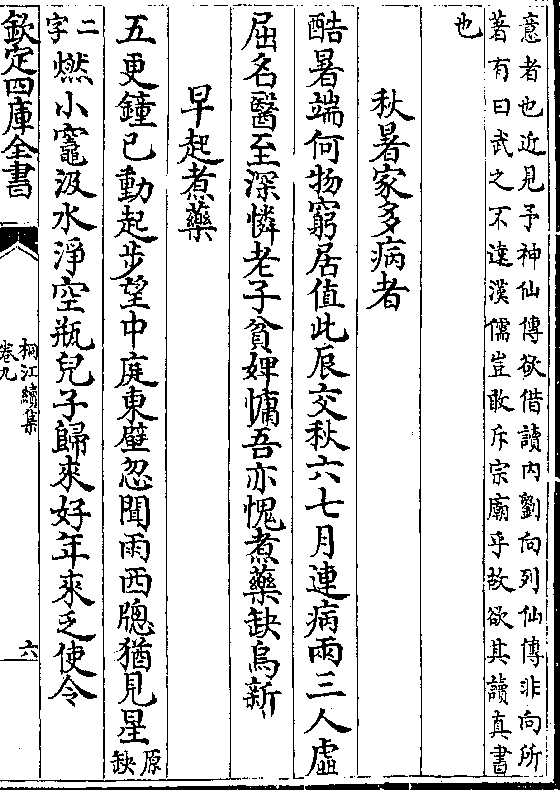 意者也近見予神仙傳欲借讀内劉向列仙傳非向所
著有曰武之不逮漢儒豈敢斥宗廟乎故欲其讀真書
也
秋暑家多病者
酷暑端何物窮居值此辰交秋六七月連病兩三人虛
屈名醫至深憐老子貧婢慵吾亦愧煮藥缺烏新
早起煮藥
五更鐘已動起步望中庭東壁忽聞雨西牕猶見星原缺
二字燃小竈汲水淨空瓶兒子歸來好年來乏使令
欽定四庫全書
桐江續集
卷九
六